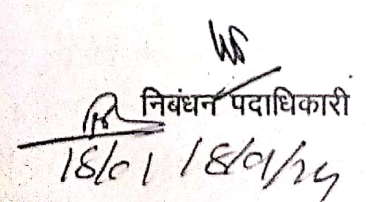 निबंधन पदाधिकारी
18/01 18/01/24